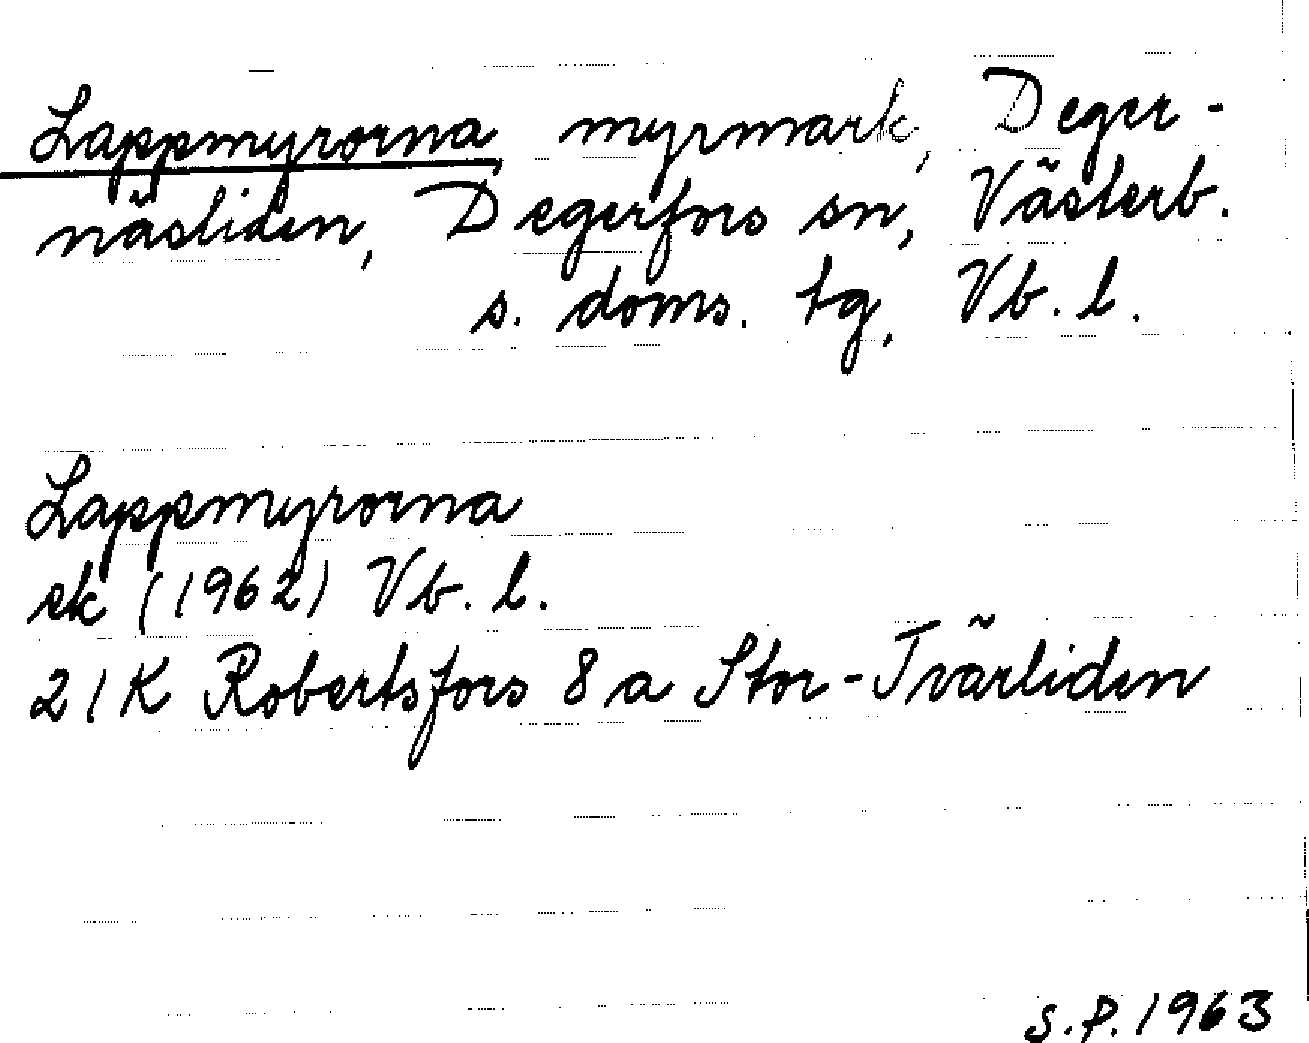 Lappmyrorna, myrmark, Deger-
näsliden, Degerfors sn, Västerb.
s. doms. tg, Vb. l.
Lappmyrorna
ek (1962) Vb. l.
21K Robertsfors 8 a Stor-Tvärliden
S.P. 1963